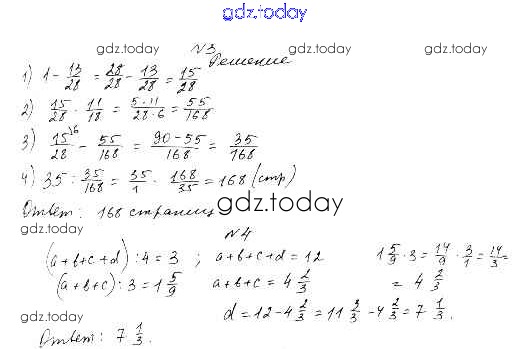 gdz.today
gdz.today gdz.today gdz.today
№3
Решение
1) 1 - 13/28 = 28/28 - 13/28 = 15/28
gdz.today
2) 15/28 · 11/18 = 5·11/28·6 = 55/168
3) 15/28 \6 - 55/168 = 90-55/168 = 35/168
4) 35 : 35/168 = 35/1 · 168/35 = 168 (стр)
Ответ: 168 страниц
gdz.today
№4
(a+b+c+d) : 4 = 3 ; a+b+c+d = 12 1 5/9 · 3 = 14/9 · 3/1 = 14/3 =
(a+b+c) : 3 = 1 5/9 a+b+c = 4 2/3 = 4 2/3
gdz.today
d = 12 - 4 2/3 = 11 3/3 - 4 2/3 = 7 1/3.
gdz.today
Ответ: 7 1/3.
gdz.today